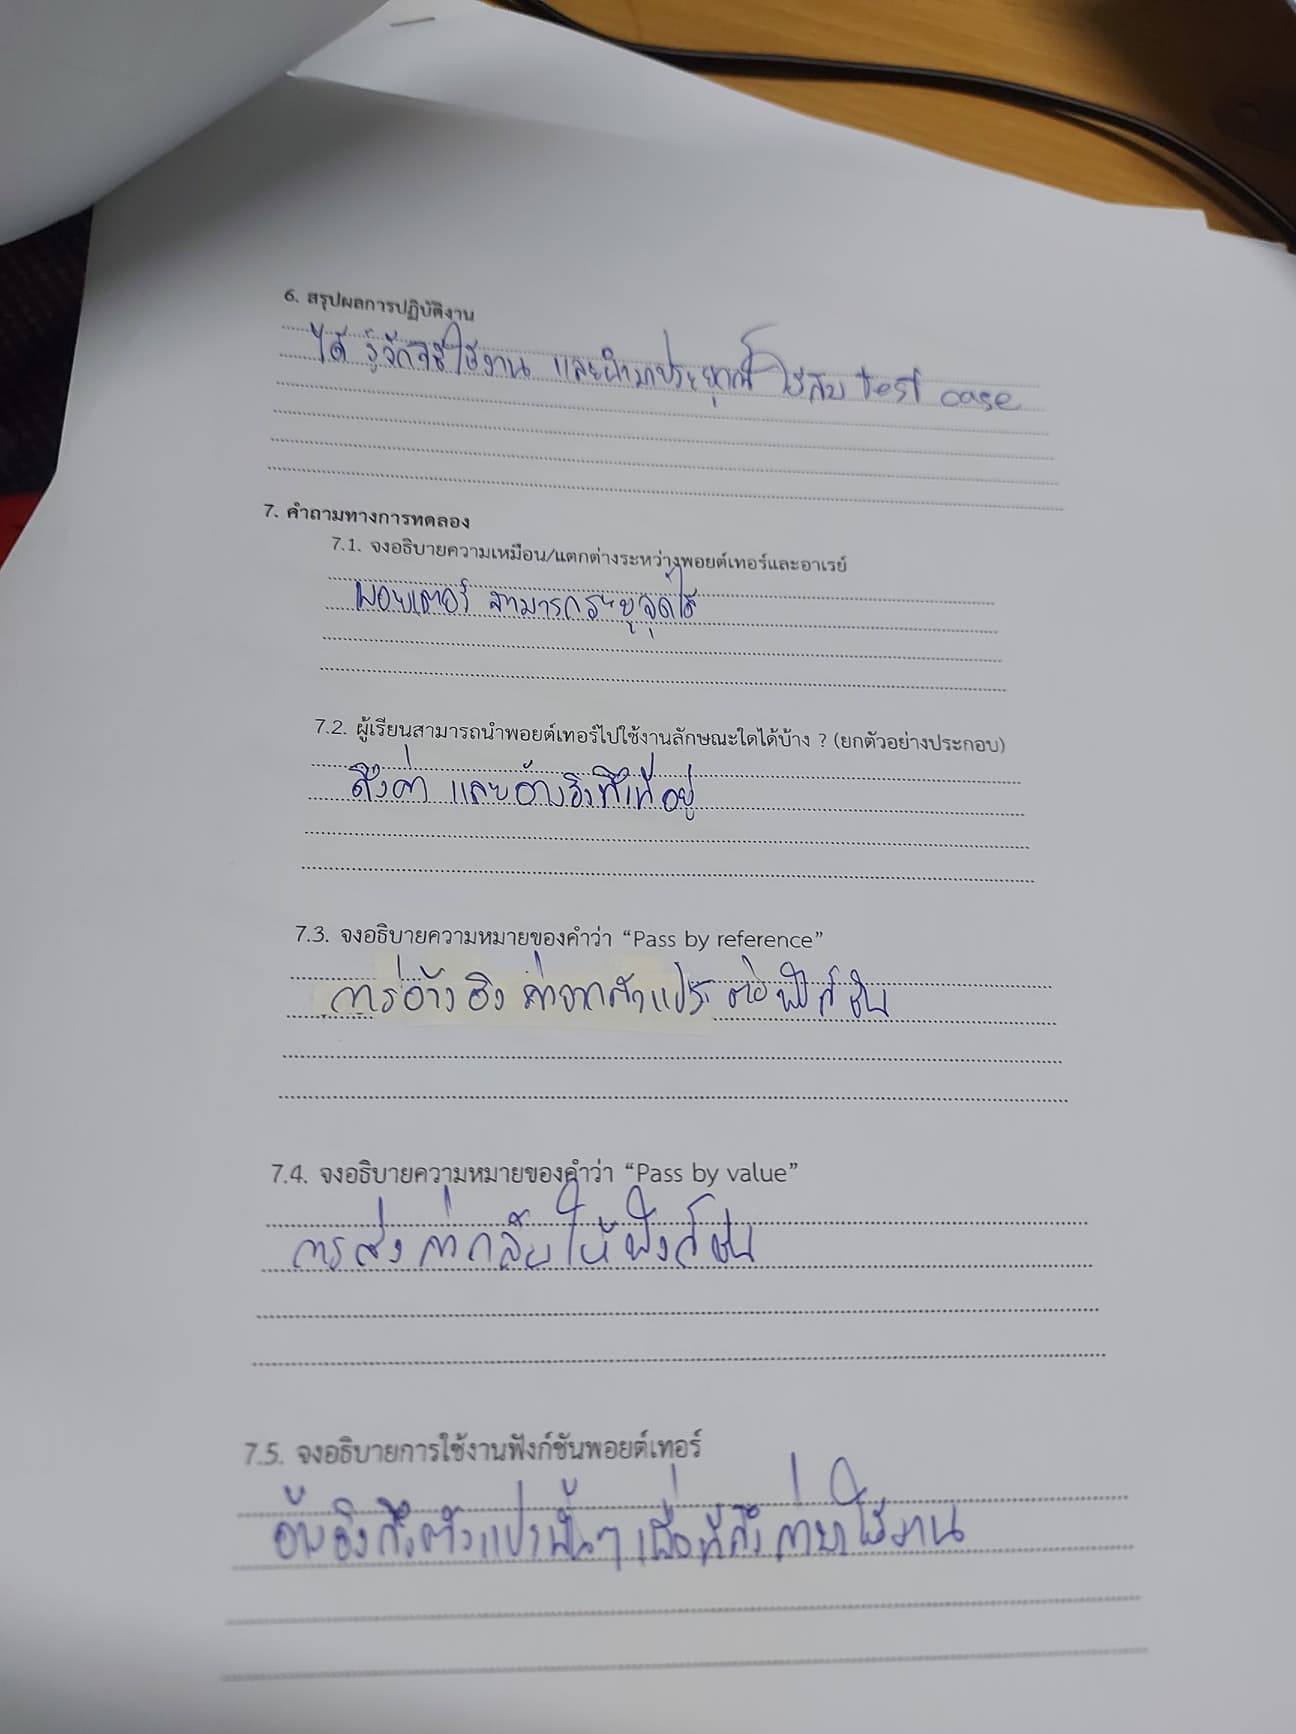 6. สรุปผลการปฏิบัติงาน
ได้ รู้จักวิธีใช้งาน และนำมาประยุกต์ใช้กับ test case
7. คำถามทางการทดลอง
7.1. จงอธิบายความเหมือน/แตกต่างระหว่างพอยต์เทอร์และอาเรย์
พอยเตอร์ สามารถระบุจุดได้
7.2. ผู้เรียนสามารถนำพอยต์เทอร์ไปใช้งานลักษณะใดได้บ้าง ? (ยกตัวอย่างประกอบ)
ดึงค่า และอ้างอิงที่อยู่
7.3. จงอธิบายความหมายของคำว่า “Pass by reference”
การอ้างอิง ค่าจากตัวแปร ต่อ ฟังก์ชัน
7.4. จงอธิบายความหมายของคำว่า “Pass by value”
การส่ง ค่ากลับให้ฟังก์ชัน
7.5. จงอธิบายการใช้งานฟังก์ชันพอยต์เทอร์
อ้างอิงถึงตัวแปรนั้นๆ เพื่อที่ดึงค่ามาใช้งาน